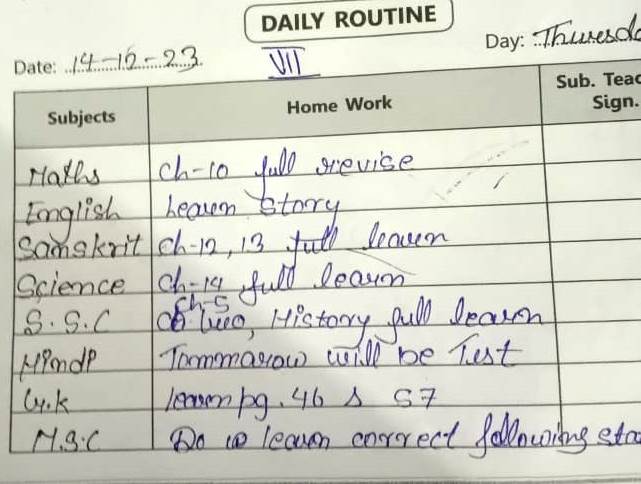 DAILY ROUTINE
Date: 14-12-23. Day: Thursda
VII
Subjects Home Work Sub. Teac Sign.
Maths Ch-10 full revise
English Learn Story
Samskrit Ch-12, 13 full learn
Science Ch-14 full learn
Ch-5
S.S.C two, History full learn
Hindi Tommarow will be Test
G.k learn pg. 46 57
M.S.C Do learn correct following sta